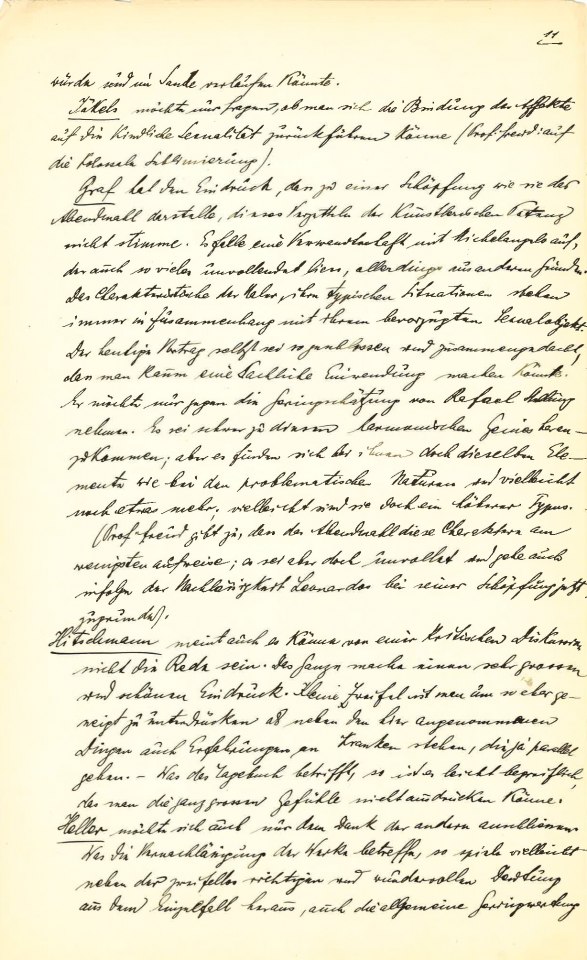 11
würde und im Sande verlaufen könnte.
Jekels möchte nur fragen, ob man sich die Bindung der Affekte
auf die kindliche Sexualität zurückführen könne (Prof. Freud: auf
die kolossale Sublimierung).
Graf hat den Eindruck, dass zu einer Schöpfung wie sie das
Abendmahl darstelle, dieses der künstlerischen Potenz
nicht stimme. Es falle eine Verwandtschaft mit Michelangelo auf,
der auch so vieles unvollendet liess, allerdings aus anderen Gründen.
Das Charakteristische der Maler, ihre typischen Situationen stehen
immer in Zusammenhang mit ihrem bevorzugten Sexualobjekt.
Der heutige Vortrag selbst sei so geschlossen und zusammengedacht,
dass man kaum eine sachliche Einwendung machen könnte.
Er möchte nur gegen die Geringschätzung von Rafael Stellung
nehmen. Es sei schwer zu diesen harmonischen Genies heran-
zukommen; aber es fänden sich bei ihnen doch dieselben Ele-
mente wie bei den problematischen Naturen und vielleicht
noch etwas mehr; vielleicht sind sie doch ein höherer Typus.
(Prof. Freud gibt zu, dass das Abendmahl diese Charaktere am
wenigsten aufweise; es sei aber doch unvollet und gehe auch
infolge der Nachlässigkeit Leonardos bei seiner Schöpfung jetzt
zugrunde).
Hitschmann meint auch es könne von einer kritischen Diskussion
nicht die Rede sein. Das Ganze mache einen sehr grossen
und schönen Eindruck. Kleine Zweifel ist man um so eher ge-
neigt zu unterdrücken als neben den hier angenommenen
Dingen auch Erfahrungen an Kranken stehen, die ja parallel
gehen. – Was das Tagebuch betrifft, so ist es leicht begreiflich,
dass man die ganz grossen Gefühle nicht ausdrücken könne.
Heller möchte sich auch nur dem Dank der andern anschliessen.
Was die Vernachlässigung der Werke betreffe, so spiele vielleicht
neben der zweifellos richtigen und wundervollen Deutung
aus dem Einzelfall heraus, auch die allgemeine Geringwertung